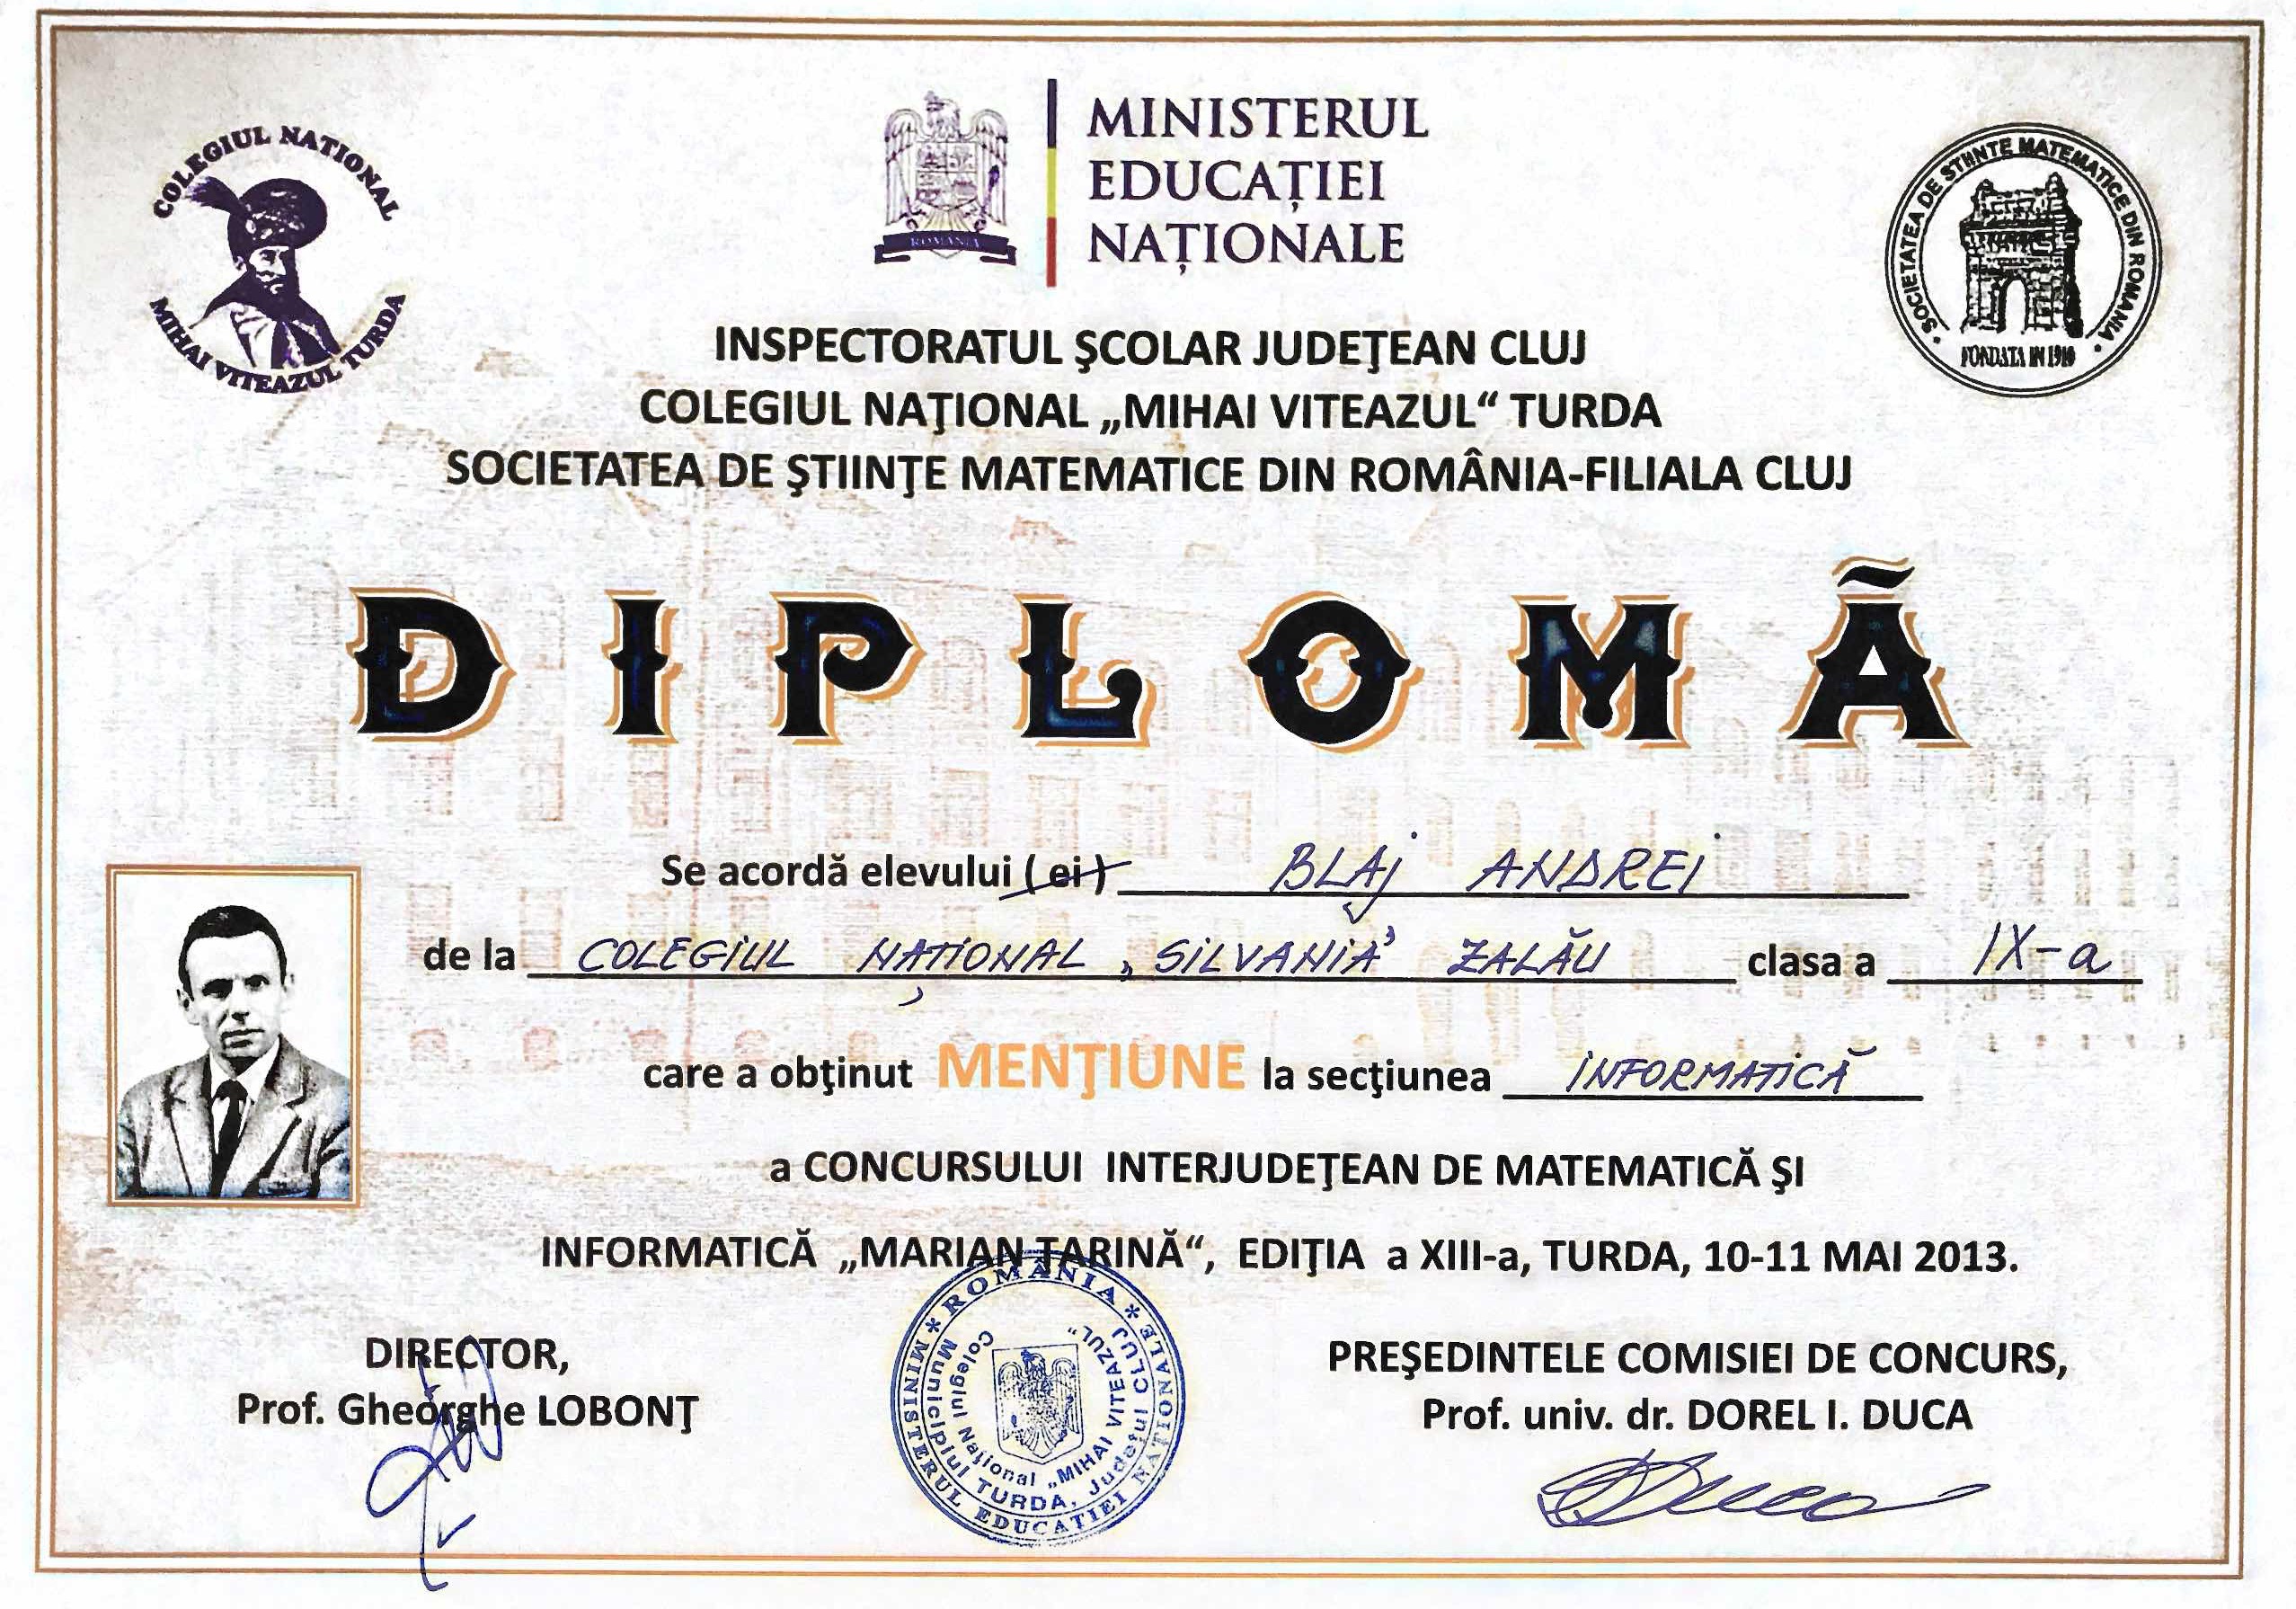 COLEGIUL NATIONAL
MIHAI VITEAZUL TURDA
ROMANIA
MINISTERUL
EDUCAȚIEI
NAȚIONALE
SOCIETATEA DE STIINTE MATEMATICE DIN ROMANIA
FONDATA IN 1910
INSPECTORATUL ŞCOLAR JUDEŢEAN CLUJ
COLEGIUL NAŢIONAL „MIHAI VITEAZUL“ TURDA
SOCIETATEA DE ŞTIINŢE MATEMATICE DIN ROMÂNIA-FILIALA CLUJ
DIPLOMÃ
Se acordă elevului ( ei ) BLAJ ANDREI
de la COLEGIUL NAȚIONAL „SILVANIA” ZALĂU clasa a IX-a
care a obţinut MENŢIUNE la secţiunea INFORMATICĂ
a CONCURSULUI INTERJUDEŢEAN DE MATEMATICĂ ŞI
INFORMATICĂ „MARIAN ŢARINĂ“, EDIŢIA a XIII-a, TURDA, 10-11 MAI 2013.
DIRECTOR,
Prof. Gheorghe LOBONŢ
* ROMÂNIA * MINISTERUL EDUCAȚIEI NAȚIONALE
Municipiul TURDA, Județul CLUJ
Colegiul Național „MIHAI VITEAZUL”
PREŞEDINTELE COMISIEI DE CONCURS,
Prof. univ. dr. DOREL I. DUCA